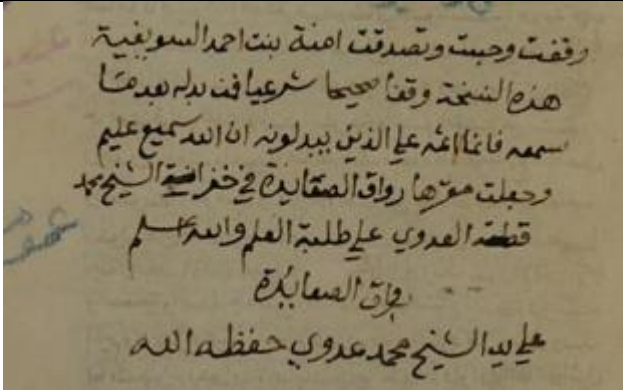 وقفت وحبست وتصدقت امنة بنت احمد السويفية
هذه النسخة وقفا صحيحا شرعيا فمن بدله بعد ما
سمعه فانما اثمه علي الذين يبدلونه ان الله سميع عليم
وجعلت مقرها رواق الصعايدة في خزانة الشيخ محمد
قطة العدوي علي طلبة العلم والله اعلم
رواق الصعايدة
علي يد الشيخ محمد عدوي حفظه الله